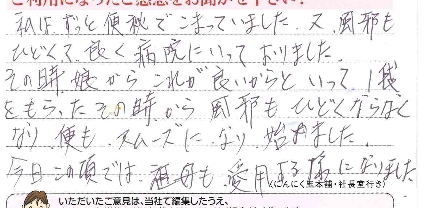 ご利用になったご感想をお聞かせ下さい!
私はずっと便秘でこまっていました。又、風邪も
ひどくて良く病院にいっておりました。
その時娘からこれが良いからといって、1袋
をもらったその時から風邪もひどくならなく
なり便もスムーズになり始めました。
今日この頃では、祖母も愛用する様になりました
(にんにく玉本舗・社長室行き)
いただいたご意見は、当社で編集したうえ、